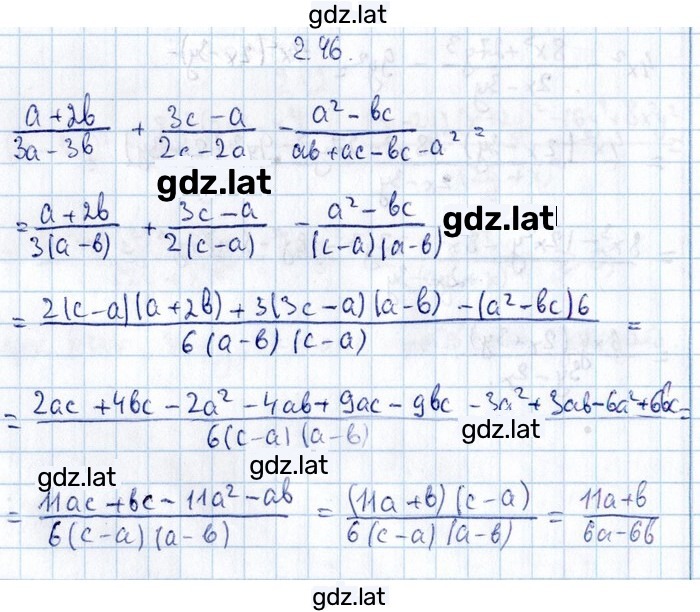 gdz.lat
2.46.
(a+2b)/(3a-3b) + (3c-a)/(2c-2a) - (a²-bc)/(ab+ac-bc-a²) =
gdz.lat
= (a+2b)/(3(a-b)) + (3c-a)/(2(c-a)) - (a²-bc)/((c-a)(a-b)) gdz.lat
= (2(c-a)(a+2b)+3(3c-a)(a-b)-(a²-bc)6)/(6(a-b)(c-a)) =
= (2ac+4bc-2a²-4ab+9ac-9bc-3a²+3ab-6a²+6bc)/(6(c-a)(a-b)) =
gdz.lat
gdz.lat
gdz.lat
= (11ac+bc-11a²-ab)/(6(c-a)(a-b)) = ((11a+b)(c-a))/(6(c-a)(a-b)) = (11a+b)/(6a-6b)
gdz.lat